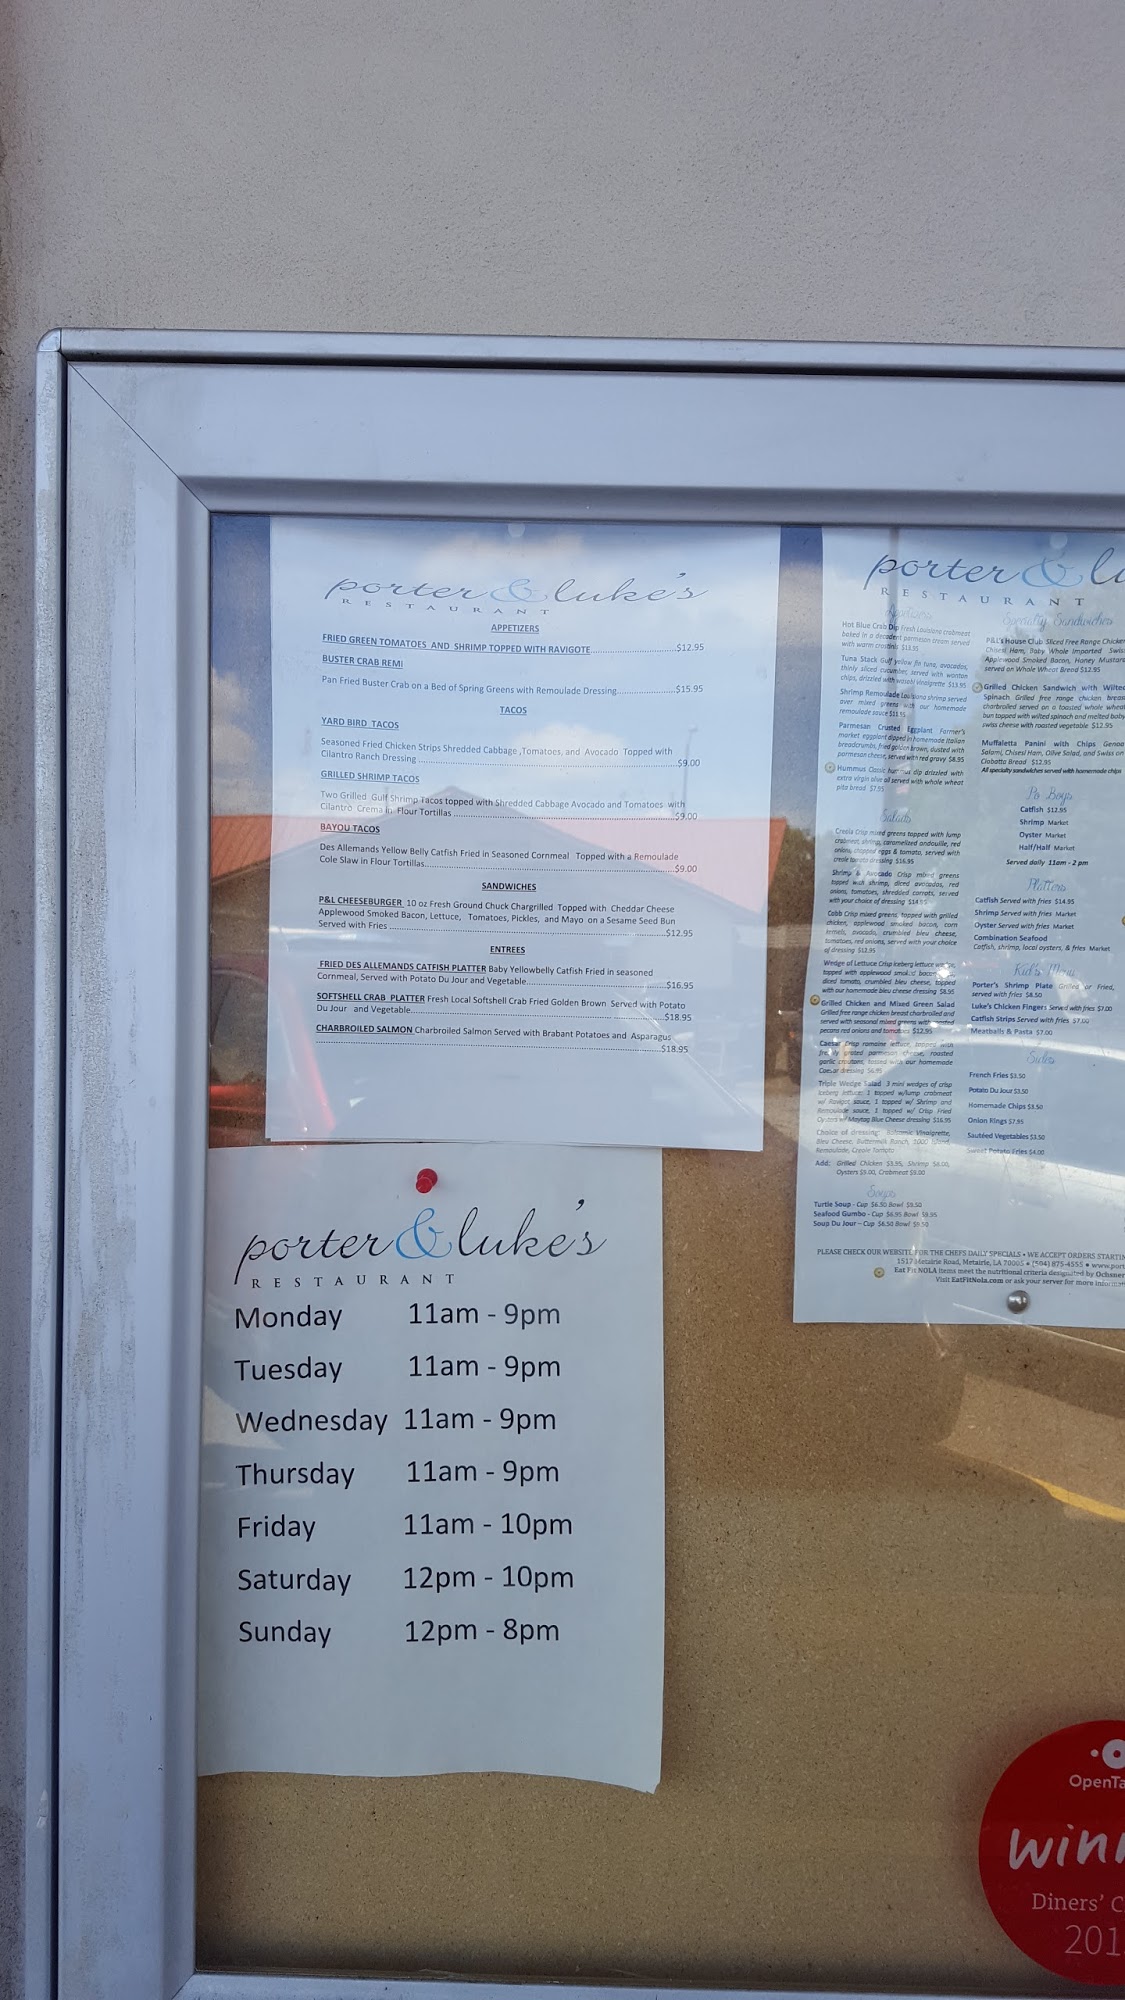 porter & luke's
RESTAURANT
APPETIZERS
FRIED GREEN TOMATOES AND SHRIMP TOPPED WITH RAVIGOTE $12.95
BUSTER CRAB REMI
Pan Fried Buster Crab on a Bed of Spring Greens with Remoulade Dressing $15.95
TACOS
YARD BIRD TACOS
Seasoned Fried Chicken Strips Shredded Cabbage ,Tomatoes, and Avocado Topped with
Cilantro Ranch Dressing $9.00
GRILLED SHRIMP TACOS
Two Grilled Gulf Shrimp Tacos topped with Shredded Cabbage Avocado and Tomatoes with
Cilantro Crema in Flour Tortillas $9.00
BAYOU TACOS
Des Allemands Yellow Belly Catfish Fried in Seasoned Cornmeal Topped with a Remoulade
Cole Slaw in Flour Tortillas $9.00
SANDWICHES
P&L CHEESEBURGER 10 oz Fresh Ground Chuck Chargrilled Topped with Cheddar Cheese
Applewood Smoked Bacon, Lettuce, Tomatoes, Pickles, and Mayo on a Sesame Seed Bun
Served with Fries $12.95
ENTREES
FRIED DES ALLEMANDS CATFISH PLATTER Baby Yellowbelly Catfish Fried in seasoned
Cornmeal, Served with Potato Du Jour and Vegetable $16.95
SOFTSHELL CRAB PLATTER Fresh Local Softshell Crab Fried Golden Brown Served with Potato
Du Jour and Vegetable $18.95
CHARBROILED SALMON Charbroiled Salmon Served with Brabant Potatoes and Asparagus
$18.95
porter & luke's
RESTAURANT
Monday 11am - 9pm
Tuesday 11am - 9pm
Wednesday 11am - 9pm
Thursday 11am - 9pm
Friday 11am - 10pm
Saturday 12pm - 10pm
Sunday 12pm - 8pm
porter & lu
RESTAURANT
Appetizers
Hot Blue Crab Dip Fresh Louisiana crabmeat
baked in a decadent parmesan cream served
with warm crostinis $13.95
Tuna Stack Gulf yellow fin tuna, avocados,
thinly sliced cucumber, served with wonton
chips, drizzled with wasabi vinaigrette $13.95
Shrimp Remoulade Louisiana shrimp served
over mixed greens with our homemade
remoulade sauce $11.95
Parmesan Crusted Eggplant Farmer's
market eggplant dipped in homemade Italian
breadcrumbs, fried golden brown, dusted with
parmesan cheese, served with red gravy $8.95
Hummus Classic hummus dip drizzled with
extra virgin olive oil served with whole wheat
pita bread $7.95
Salads
Creola Crisp mixed greens topped with lump
crabmeat, shrimp, caramelized andouille, red
onions, chopped eggs & tomato, served with
creole tomato dressing $16.95
Shrimp & Avocado Crisp mixed greens
topped with shrimp, diced avocados, red
onions, tomatoes, shredded carrots, served
with your choice of dressing $14.95
Cobb Crisp mixed greens, topped with grilled
chicken, applewood smoked bacon, corn
kernels, avocado, crumbled bleu cheese,
tomatoes, red onions, served with your choice
of dressing $12.95
Wedge of Lettuce Crisp iceberg lettuce wedge,
topped with applewood smoked bacon,
diced tomato, crumbled bleu cheese, topped
with our homemade bleu cheese dressing $8.95
Grilled Chicken and Mixed Green Salad
Grilled free range chicken breast charbroiled and
served with seasonal mixed greens with roasted
pecans red onions and tomatoes $12.95
Caesar Crisp romaine lettuce, topped with
freshly grated parmesan cheese, roasted
garlic croutons, tossed with our homemade
Caesar dressing $6.95
Triple Wedge Salad 3 mini wedges of crisp
iceberg lettuce: 1 topped w/lump crabmeat
w/ Ravigot sauce, 1 topped w/ Shrimp and
Remoulade sauce, 1 topped w/ Crisp Fried
Oysters w/ Maytag Blue Cheese dressing $16.95
Choice of dressing: Balsamic Vinaigrette,
Bleu Cheese, Buttermilk Ranch, 1000 Island,
Remoulade, Creole Tomato
Add: Grilled Chicken $3.95, Shrimp $8.00,
Oysters $9.00, Crabmeat $9.00
Soups
Turtle Soup - Cup $6.50 Bowl $9.50
Seafood Gumbo - Cup $6.95 Bowl $9.95
Soup Du Jour - Cup $6.50 Bowl $9.50
Specialty Sandwiches
P&L's House Club Sliced Free Range Chicken
Chisesi Ham, Baby Whole Imported Swis
Applewood Smoked Bacon, Honey Mustar
served on Whole Wheat Bread $12.95
Grilled Chicken Sandwich with Wilte
Spinach Grilled free range chicken breas
charbroiled served on a toasted whole wheat
bun topped with wilted spinach and melted baby
swiss cheese with roasted vegetable $12.95
Muffaletta Panini with Chips Genoa
Salami, Chisesi Ham, Olive Salad, and Swiss on
Ciabatta Bread $12.95
All specialty sandwiches served with homemade chips
Po Boys
Catfish $12.95
Shrimp Market
Oyster Market
Half/Half Market
Served daily 11am - 2 pm
Platters
Catfish Served with fries $14.95
Shrimp Served with fries Market
Oyster Served with fries Market
Combination Seafood
Catfish, shrimp, local oysters, & fries Market
Kid's Menu
Porter's Shrimp Plate Grilled or Fried,
served with fries $8.50
Luke's Chicken Fingers Served with fries $7.00
Catfish Strips Served with fries $7.00
Meatballs & Pasta $7.00
Sides
French Fries $3.50
Potato Du Jour $3.50
Homemade Chips $3.50
Onion Rings $7.95
Sautéed Vegetables $3.50
Sweet Potato Fries $4.00
PLEASE CHECK OUR WEBSITE FOR THE CHEFS DAILY SPECIALS • WE ACCEPT ORDERS STARTIN
1517 Metairie Road, Metairie, LA 70005 • (504) 875-4555 • www.port
Eat Fit NOLA items meet the nutritional criteria designated by Ochsner
Visit EatFitNola.com or ask your server for more informat
OpenTa
winn
Diners' C
201